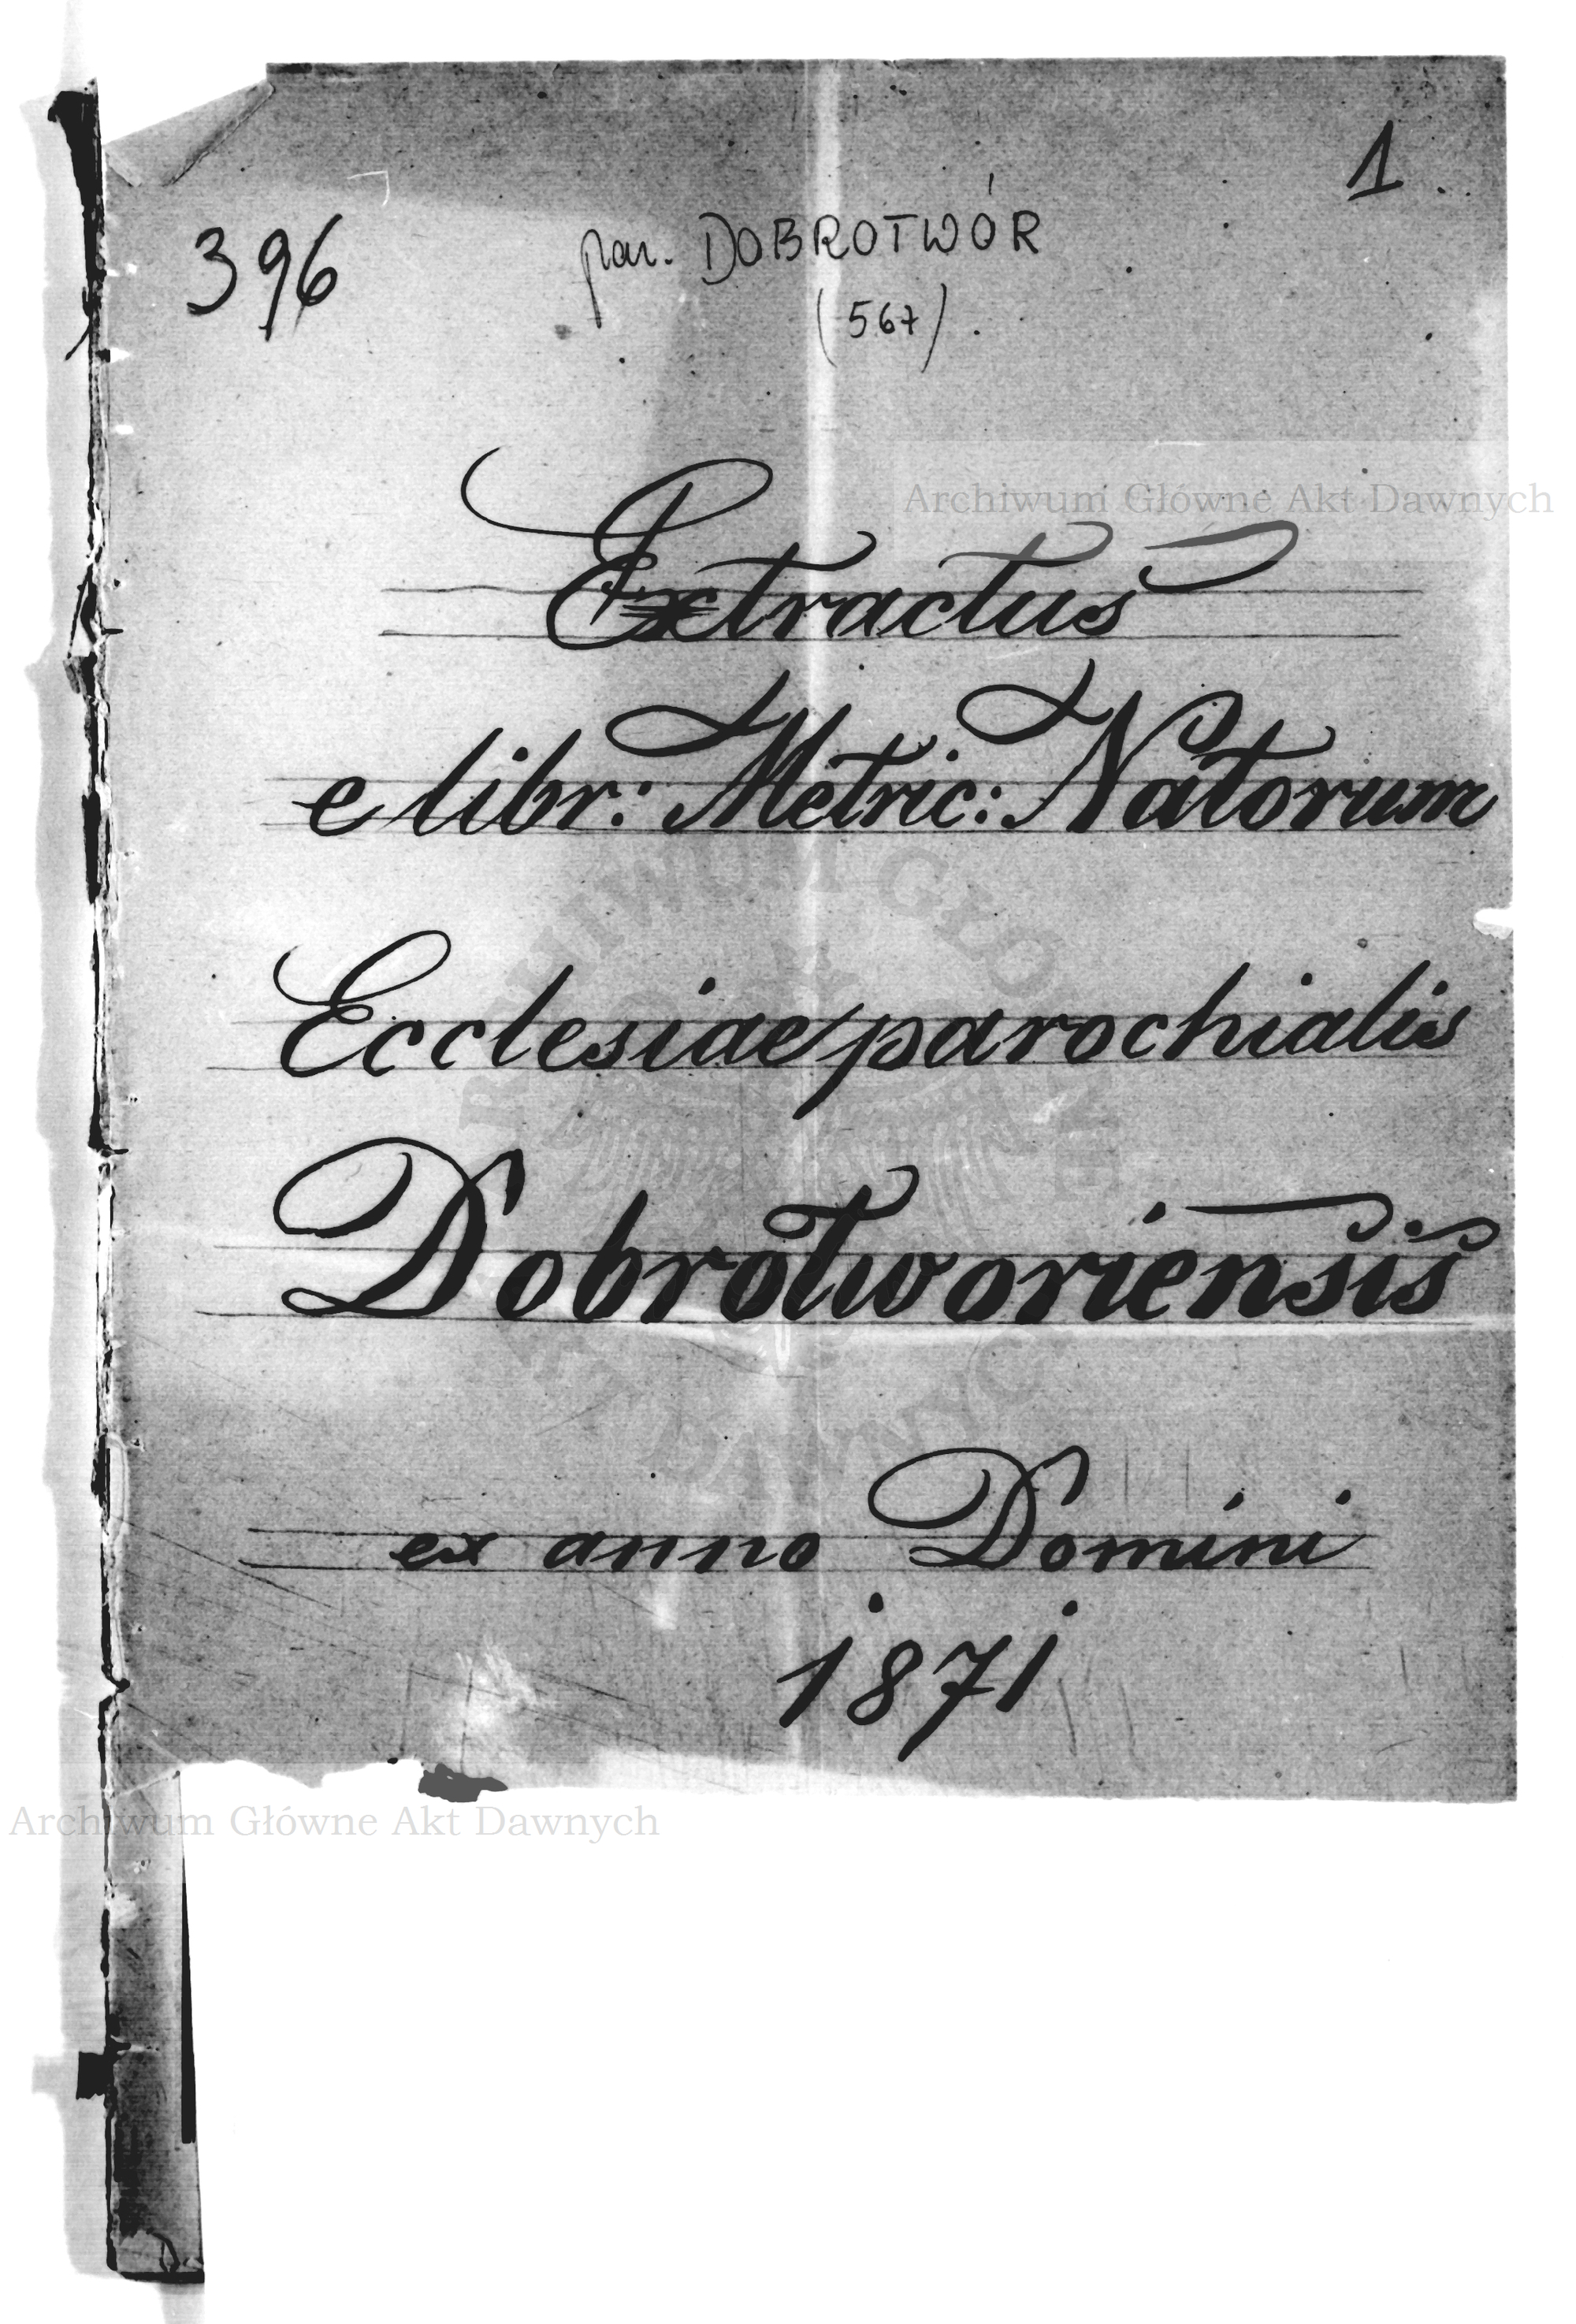 1
396
par. DOBROTWÓR
(567).
Archiwum Główne Akt Dawnych
Extractus
e libr: Metric: Natorum
Ecclesiae parochialis
Dobrotworiensis
ex anno Domini
1871
Archiwum Główne Akt Dawnych